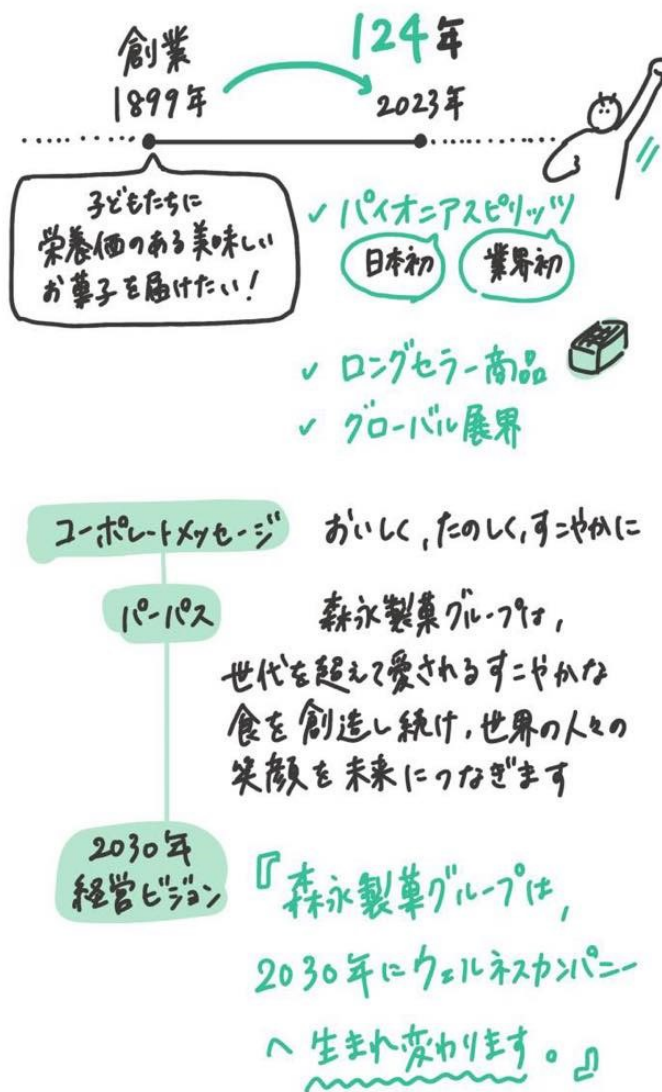 124年
創業
1899年
2023年
子どもたちに
栄養価のある美味しい
お菓子を届けたい!
✓ パイオニアスピリッツ
日本初
業界初
✓ ロングセラー商品
✓ グローバル展界
コーポレートメッセージ
おいしく,たのしく,すこやかに
パーパス
森永製菓グループは,
世代を超えて愛されるすこやかな
食を創造し続け,世界の人々の
笑顔を未来につなぎます
2030年
経営ビジョン
『森永製菓グループは,
2030年にウェルネスカンパニー
へ生まれ変わります。』